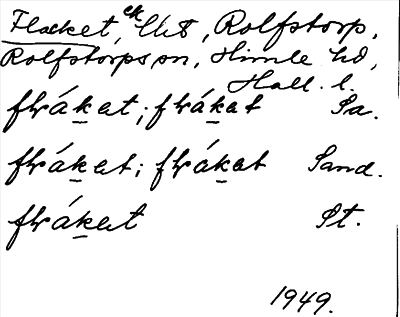 Flacket, ek, Rolfstorp,
Rolfstorps sn, Himle hd,
Hall. l.
flrákat; flrákat Sa.
flrákat; flrákat Sand.
flrákat St.
1949.